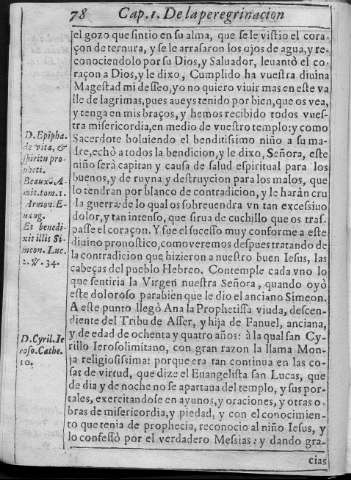 78 Cap. 1. De la peregrinacion
el gozo que sintio en su alma, que se le vistio el cora
çon de ternura, y se le arrasaron los ojos de agua, y re
conociendolo por su Dios, y Saluador, leuantò el co
raçon a Dios, y le dixo, Cumplido ha vuestra diuina
Magestad mi desseo, yo no quiero viuir mas en este va
lle de lagrimas, pues aueys tenido por bien, que os vea,
y tenga en mis braços, y hemos recibido todos vues
tra misericordia, en medio de vuestro templo: y como
Sacerdote boluiendo el benditissimo niño a su ma
dre, echò a todos la bendicion, y le dixo, Señora, este
niño serà capitan y causa de salud espiritual para los
buenos, y de ruyna y destruycion para los malos, que
lo tendran por blanco de contradicion, y le haràn cru
la guerra: de lo qual os sobreuendra vn tan excessiuo
dolor, y tan intenso, que sirua de cuchillo que os tras
passe el coraçon. Y fue el sucesso muy conforme a este
diuino pronostico, como veremos despues tratando de
la contradicion que hizieron a nuestro buen Iesus, las
cabeças del pueblo Hebreo. Contemple cada vno lo
que sentiria la Virgen nuestra Señora, quando oyò
este doloroso parabien que le dio el anciano Simeon.
A este punto llegò Ana la Prophetissa viuda, descen-
diente del Tribu de Asser, y hija de Fanuel, anciana,
y de edad de ochenta y quatro años: à la qual san Cy-
rillo Ierosolimitano, con gran razon la llama Mon
ja religiosissima: porque era tan continua en las co
sas de virtud, que dize el Euangelista san Lucas, que
de dia y de noche no se apartaua del templo, y sus por-
tales, exercitandose en ayunos, y oraciones, y otras o
bras de misericordia, y piedad, y con el conocimien-
to que tenia de prophecia, reconocio al niño Iesus, y
lo confessò por el verdadero Messias: y dando gra-
cias
D. Epipha.
de vita, &
Beaux. A-
nit. tom. 1.
Et benedi-
xit illis Si-
meon. Luc.
2. V. 34.
D. Cyril. Ie
roso. Cathe.
10.